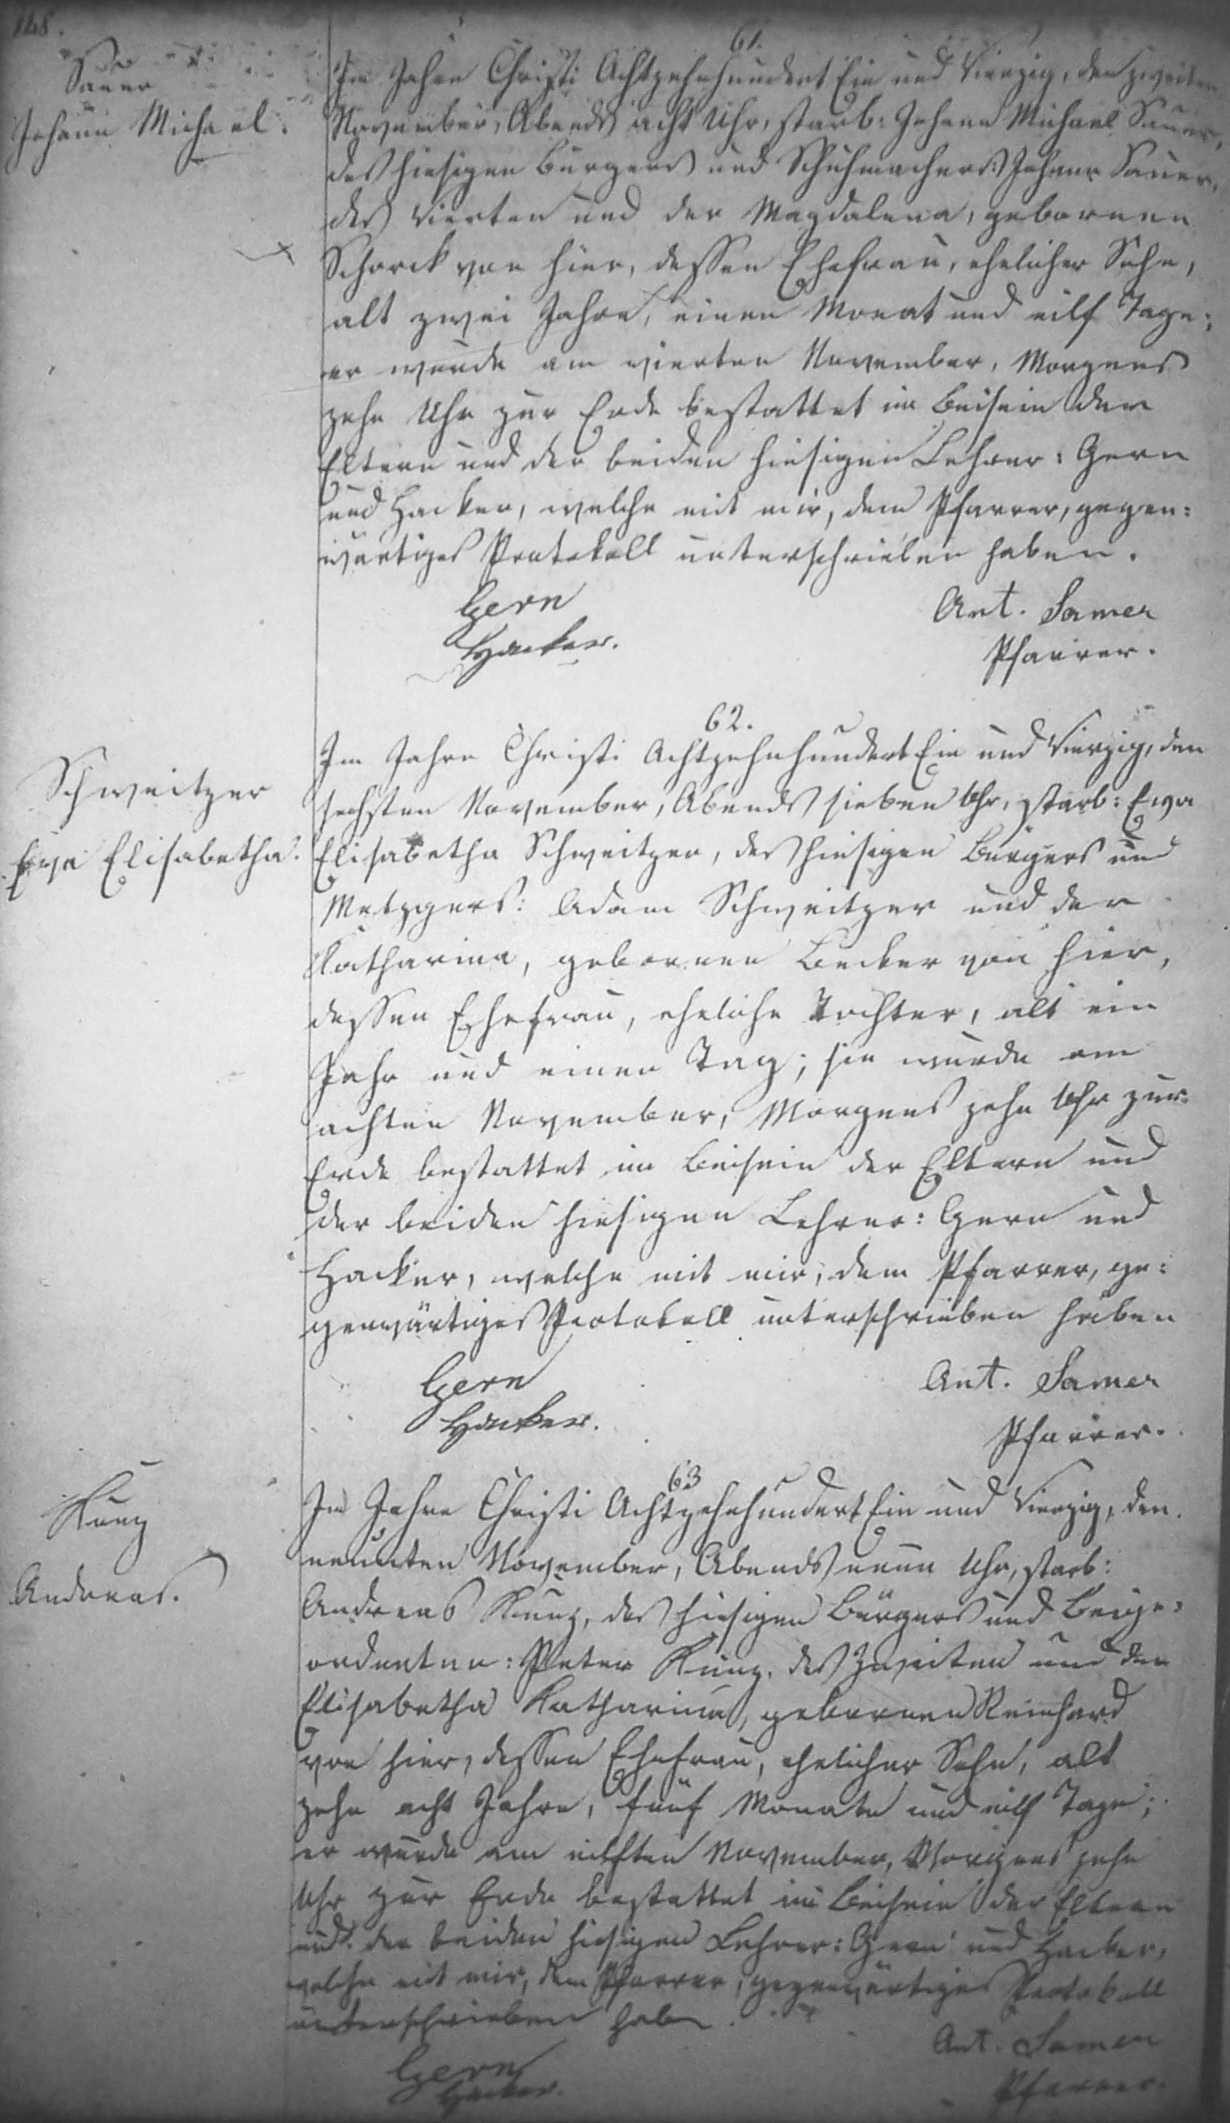 148.
61.
Sauer
Johann Michael.
Im Jahre Christi Achtzehnhundert Ein und Vierzig, den zweiten
November, Abends acht Uhr, starb: Johann Michael Sauer,
des hiesigen Bürgers und Schuhmachers: Johann Sauer,
des Vierten und der Magdalena, gebornen
Schorck von hier, dessen Ehefrau, ehelicher Sohn,
alt zwei Jahre, einen Monat und eilf Tage;
er wurde am vierten November, Morgens
zehn Uhr zur Erde bestattet im Beisein der
Eltern und der beiden hiesigen Lehrer: Gern
und Hacker, welche mit mir, dem Pfarrer, gegen:
wärtiges Protokoll unterschrieben haben.
Gern
Hacker.
Ant.
Pfarrer.
62.
Schweitzer
Eva Elisabetha.
Im Jahre Christi Achtzehnhundert Ein und Vierzig, den
sechsten November, Abends sieben Uhr, starb: Eva
Elisabetha Schweitzer, des hiesigen Bürgers und
Metzgers: Adam Schweitzer und der
Katharina, gebornen Becker von hier,
dessen Ehefrau, eheliche Tochter, alt ein
Jahr und einen Tag; sie wurde am
achten November, Morgens zehn Uhr zur
Erde bestattet im Beisein der Eltern und
der beiden hiesigen Lehrer: Gern und
Hacker, welche mit mir, dem Pfarrer, ge:
genwärtiges Protokoll unterschrieben haben
Gern
Hacker.
Ant.
Pfarrer.
63
Kunz
Andreas.
Im Jahre Christi Achtzehnhundert Ein und Vierzig, den
neunten November, Abends neun Uhr, starb:
Andreas Kunz, des hiesigen Bürgers und Beige:
ordneten: Peter Kunz, des Zweiten und der
Elisabetha Katharina, gebornen Reinhard
von hier, dessen Ehefrau, ehelicher Sohn, alt
zehn acht Jahre, fünf Monate und eilf Tage;
er wurde am eilften November, Morgens zehn
Uhr zur Erde bestattet im Beisein der Eltern
und der beiden hiesigen Lehrer: Gern und Hacker,
welche mit mir, dem Pfarrer, gegenwärtiges Protokoll
unterschrieben haben.
Gern
Hacker.
Ant.
Pfarrer.